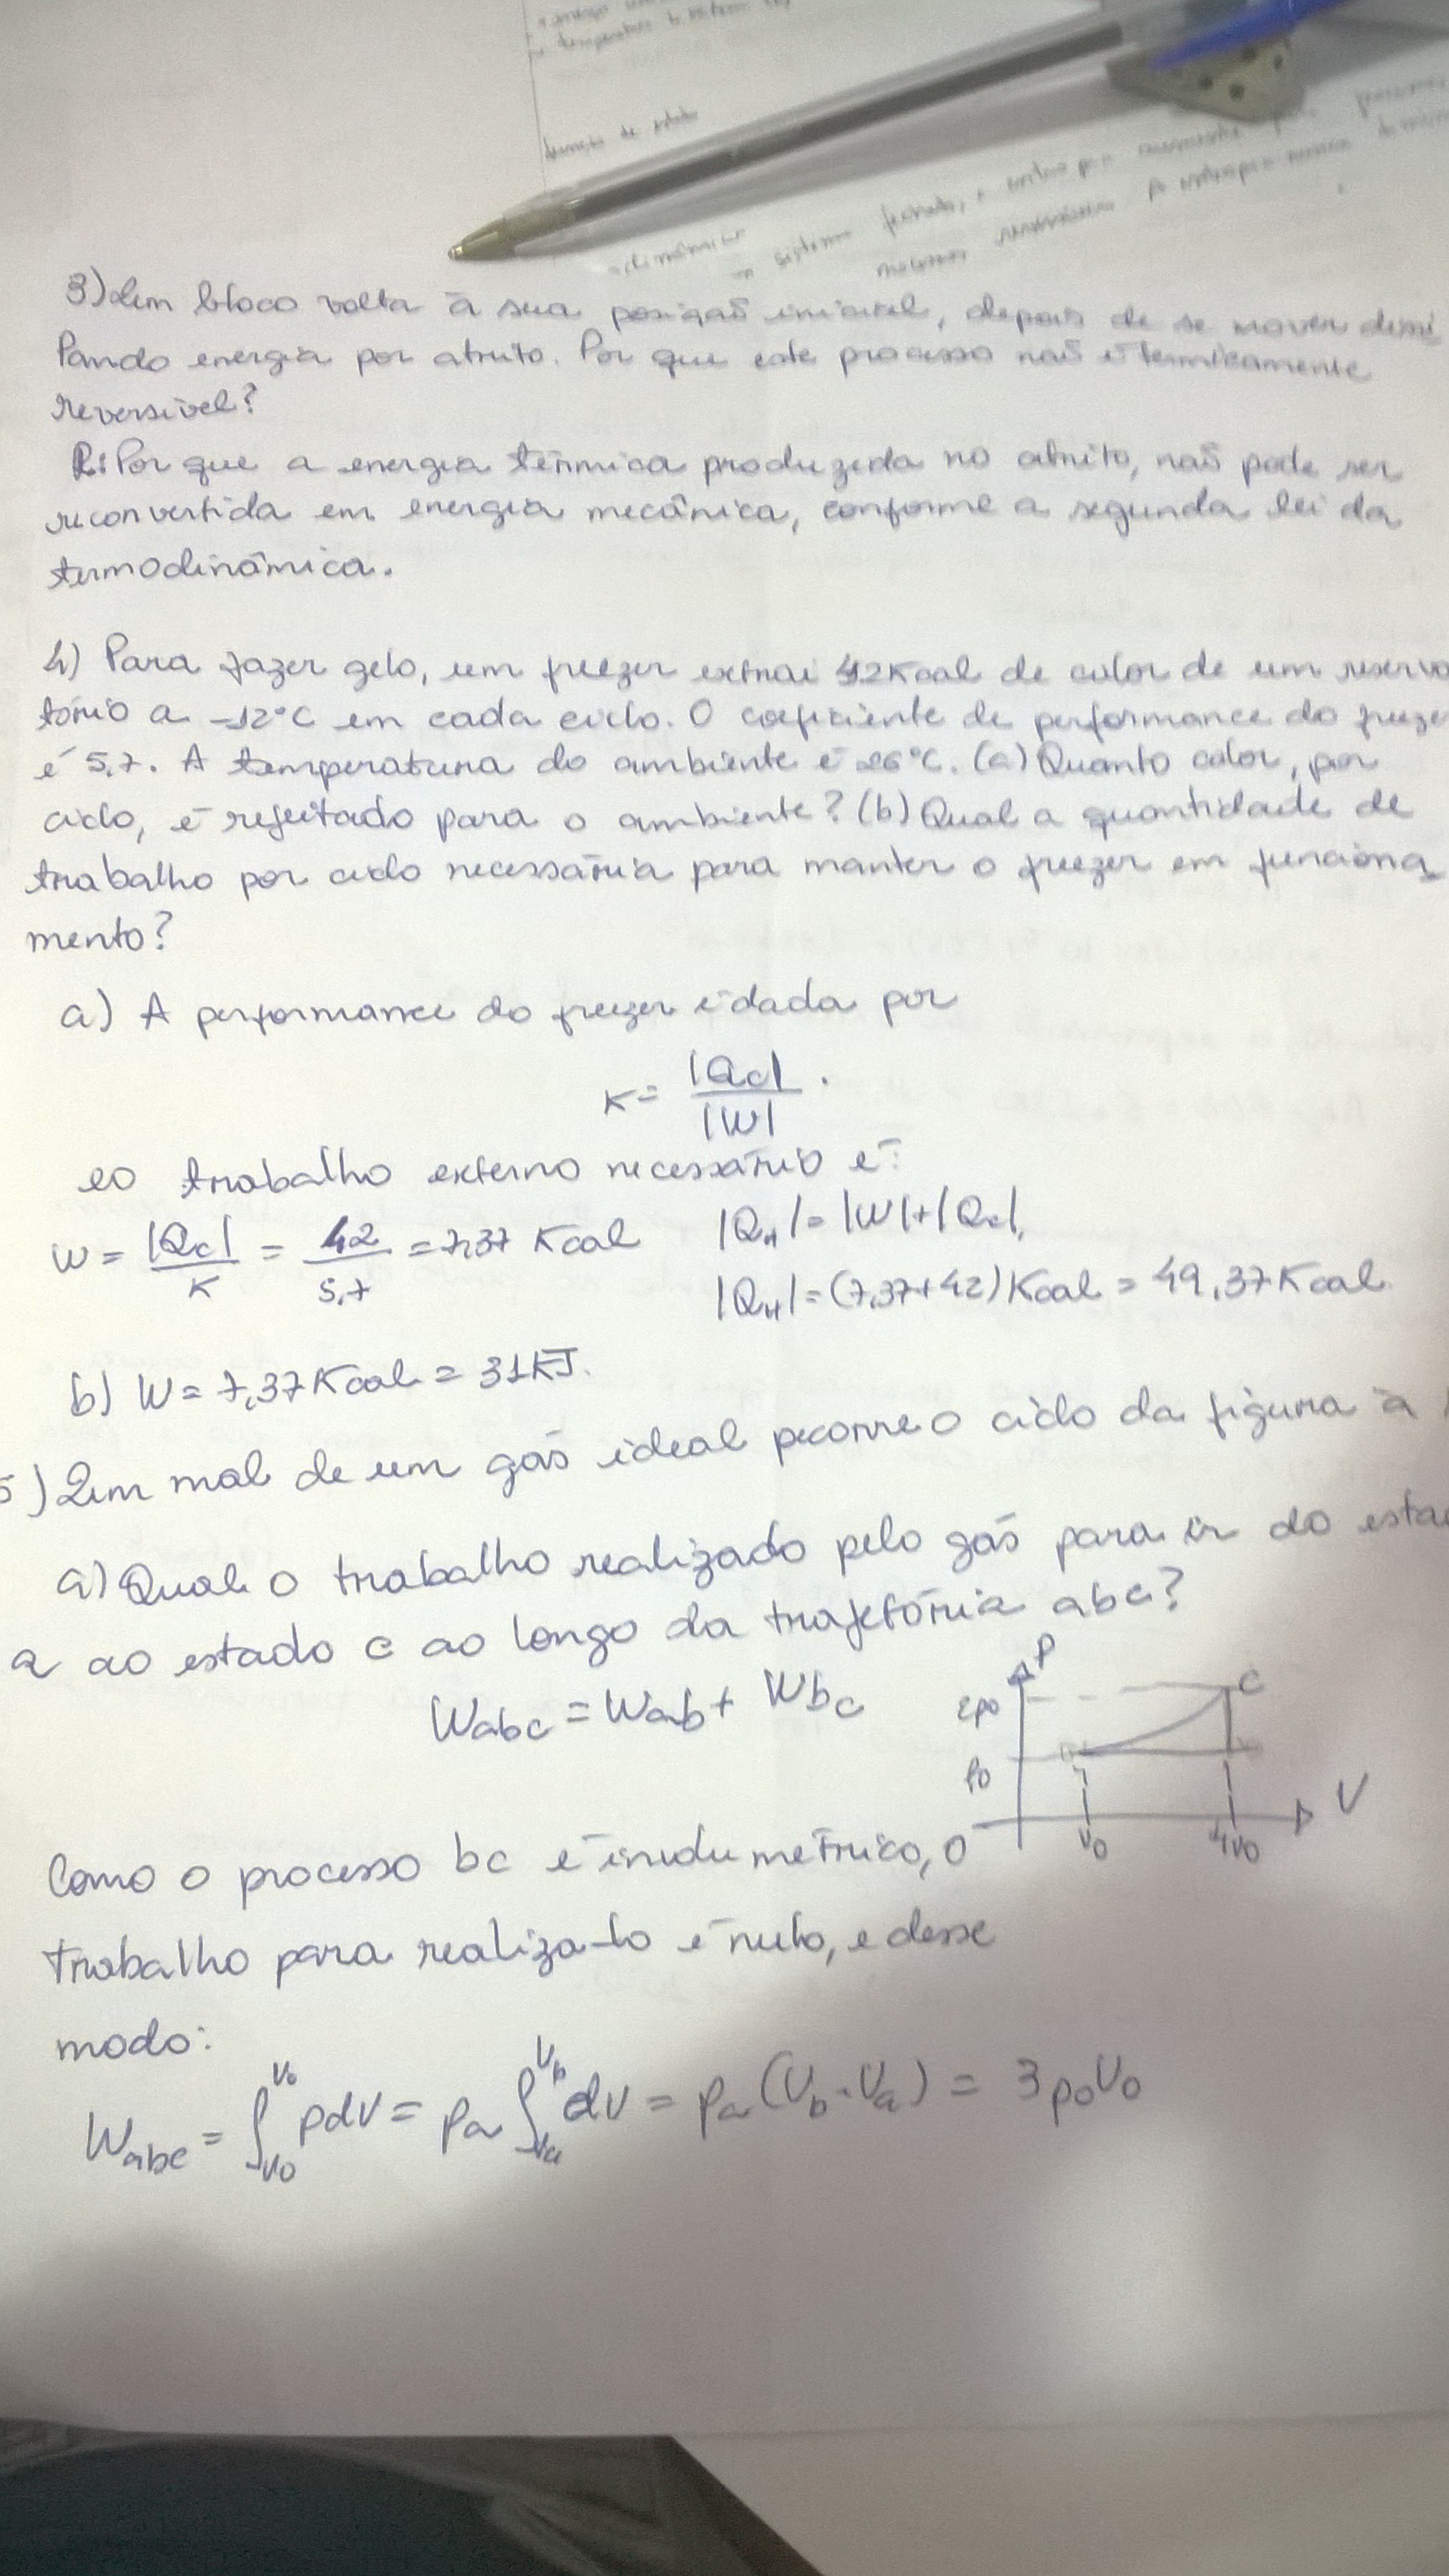 temperatura
função de estado
sistema fechado, a entropia aumenta para
3) Um bloco volta à sua posição inicial, depois de se mover dissi
pando energia por atrito. Por que este processo não é termicamente
reversível?
R: Por que a energia térmica produzida no atrito, não pode ser
reconvertida em energia mecânica, conforme a segunda lei da
termodinâmica.
4) Para fazer gelo, um freezer extrai 42Kcal de calor de um reserva
tório a -12°C em cada ciclo. O coeficiente de performance do freeze
é 5,7. A temperatura do ambiente é 26°C. (a) Quanto calor, por
ciclo, é rejeitado para o ambiente? (b) Qual a quantidade de
trabalho por ciclo necessária para manter o freezer em funciona
mento?
a) A performance do freezer é dada por
K = |Qc| / |W| .
e o trabalho externo necessário é:
W = |Qc| / K = 42 / 5,7 = 7,37 Kcal |QH| = |W| + |Qc|,
|QH| = (7,37+42) Kcal = 49,37 Kcal
b) W = 7,37 Kcal = 31KJ.
5) Um mol de um gás ideal pecorre o ciclo da figura à
a) Qual o trabalho realizado pelo gás para ir do esta
a ao estado c ao longo da trajetória abc?
Wabc = Wab + Wbc
P
2p0
C
p0
O
V0
4V0
V
Como o processo bc é
trabalho para realiza-lo é nulo, e desse
modo:
Wabc = ∫V0 V0 pdV = pa ∫Va Vb dV = pa (Vb - Va) = 3p0V0